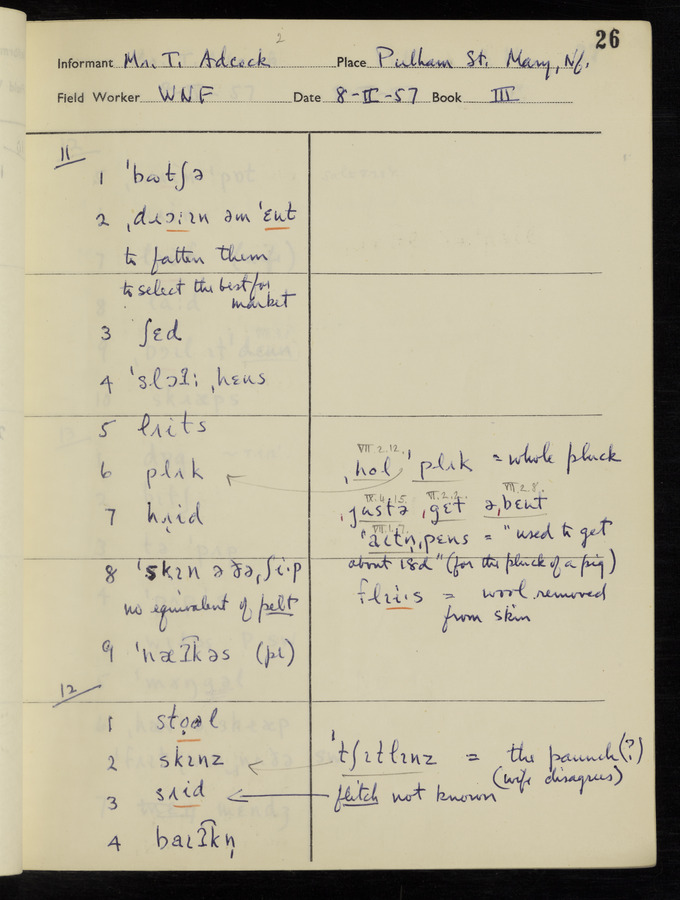 26
2
Informant Mr. T. Adcock Place Pulham St. Mary, Nf.
Field Worker WNF Date 8-II-57 Book III
11
1 ˈbʊtʃə
2 əm ˈɛut
to fatten them
to select the best for
market
3 ʃɛd
4 ˌhɛus
5 lɪits
6 plʌk
7
8 ˈskɪn ə ðə ˌʃi·p
no equivalent of pelt
9 (pl)
VII.2.12.
ˌhol ˈplʌk = whole pluck
IX.4.15. VI.2.2. VII.2.8.
ˌjustə ˌget ə ˌbɛut
VII.1.7.
ˌpɛns = "used to get
about 18d" (for the pluck of a pig)
= wool removed
from skin
12
1
2 skɪnz
3
4
ˈtʃɪtlɪnz = the paunch (?)
(wife disagrees)
flitch not known